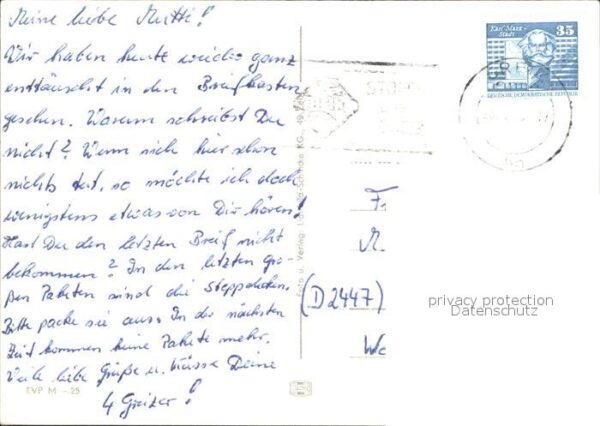 Meine liebe Mutti!
Wir haben heute wieder ganz
enttäuscht in den Briefkasten
gesehen. Warum schreibst Du
nicht? Wenn sich hier schon
nichts tut, so möchte ich doch
wenigstens etwas von Dir hören!
Hast Du den letzten Brief nicht
bekommen? In den letzten gro-
ßen Paketen sind die Steppdecken.
Bitte packe sie aus. In der nächsten
Zeit kommen keine Pakete mehr.
Viele liebe Grüße u. Küsse Deine
4 Greizer!
EVP M - 25
Foto u. Verlag:
KG
Karl-Marx-
Stadt
35
DEUTSCHE DEMOKRATISCHE REPUBLIK
F
M.
(D 2447)
We
privacy protection
Datenschutz